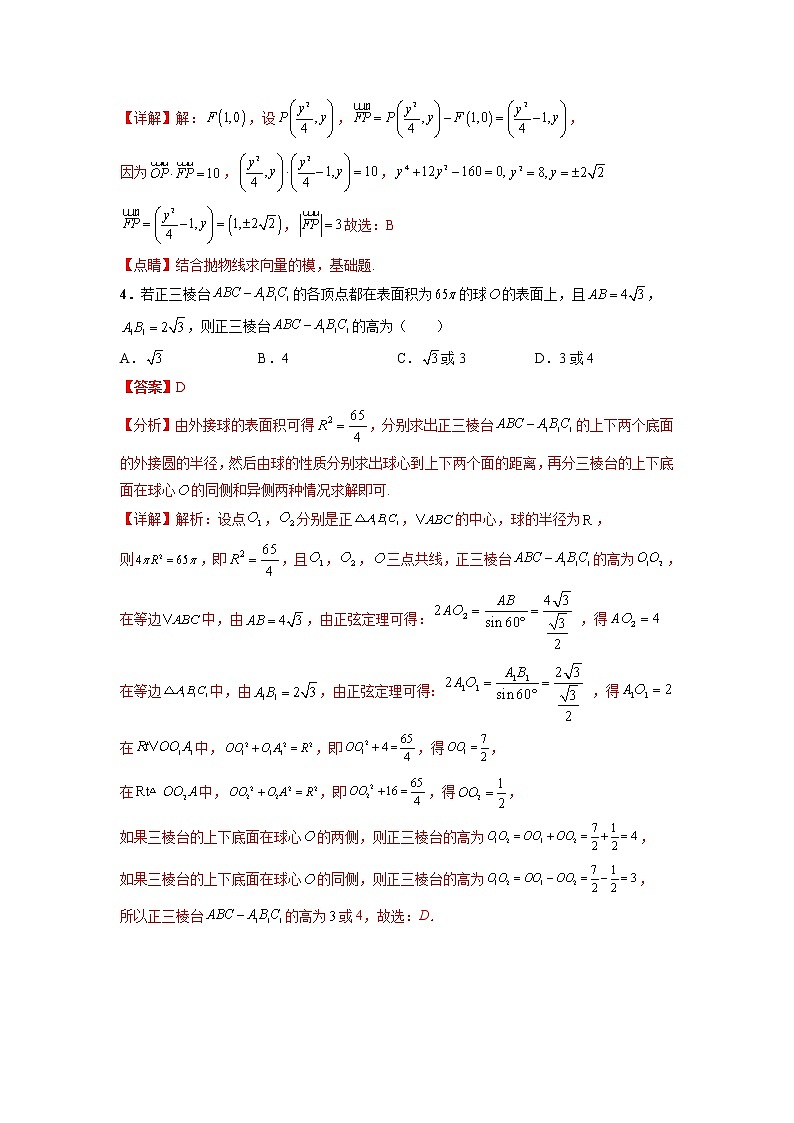 【详解】解：F(1,0)，设P(y²/4, y)，FP=P(y²/4, y)−F(1,0)=(y²/4−1, y)，
因为OP·FP=10，(y²/4, y)·(y²/4−1, y)=10，y⁴+12y²−160=0, y²=8, y=±2√2
FP=(y²/4−1, y)=(1,±2√2)，|FP|=3故选：B
【点睛】结合抛物线求向量的模，基础题.
4．若正三棱台ABC−A₁B₁C₁的各顶点都在表面积为65π的球O的表面上，且AB=4√3，
A₁B₁=2√3，则正三棱台ABC−A₁B₁C₁的高为（　　）
A．√3 B．4 C．√3或3 D．3或4
【答案】D
【分析】由外接球的表面积可得R²=65/4，分别求出正三棱台ABC−A₁B₁C₁的上下两个底面
的外接圆的半径，然后由球的性质分别求出球心到上下两个面的距离，再分三棱台的上下底
面在球心O的同侧和异侧两种情况求解即可.
【详解】解析：设点O₁，O₂分别是正△A₁B₁C₁，∨ABC的中心，球的半径为R，
则4πR²=65π，即R²=65/4，且O₁，O₂，O三点共线，正三棱台ABC−A₁B₁C₁的高为O₁O₂，
在等边∨ABC中，由AB=4√3，由正弦定理可得：2AO₂=AB/sin60°=4√3/(√3/2)，得AO₂=4
在等边△A₁B₁C₁中，由A₁B₁=2√3，由正弦定理可得：2A₁O₁=A₁B₁/sin60°=2√3/(√3/2)，得A₁O₁=2
在Rt∨OO₁A₁中，OO₁²+O₁A₁²=R²，即OO₁²+4=65/4，得OO₁=7/2，
在Rt△OO₂A中，OO₂²+O₂A²=R²，即OO₂²+16=65/4，得OO₂=1/2，
如果三棱台的上下底面在球心O的两侧，则正三棱台的高为O₁O₂=OO₁+OO₂=7/2+1/2=4，
如果三棱台的上下底面在球心O的同侧，则正三棱台的高为O₁O₂=OO₁−OO₂=7/2−1/2=3，
所以正三棱台ABC−A₁B₁C₁的高为3或4，故选：D.